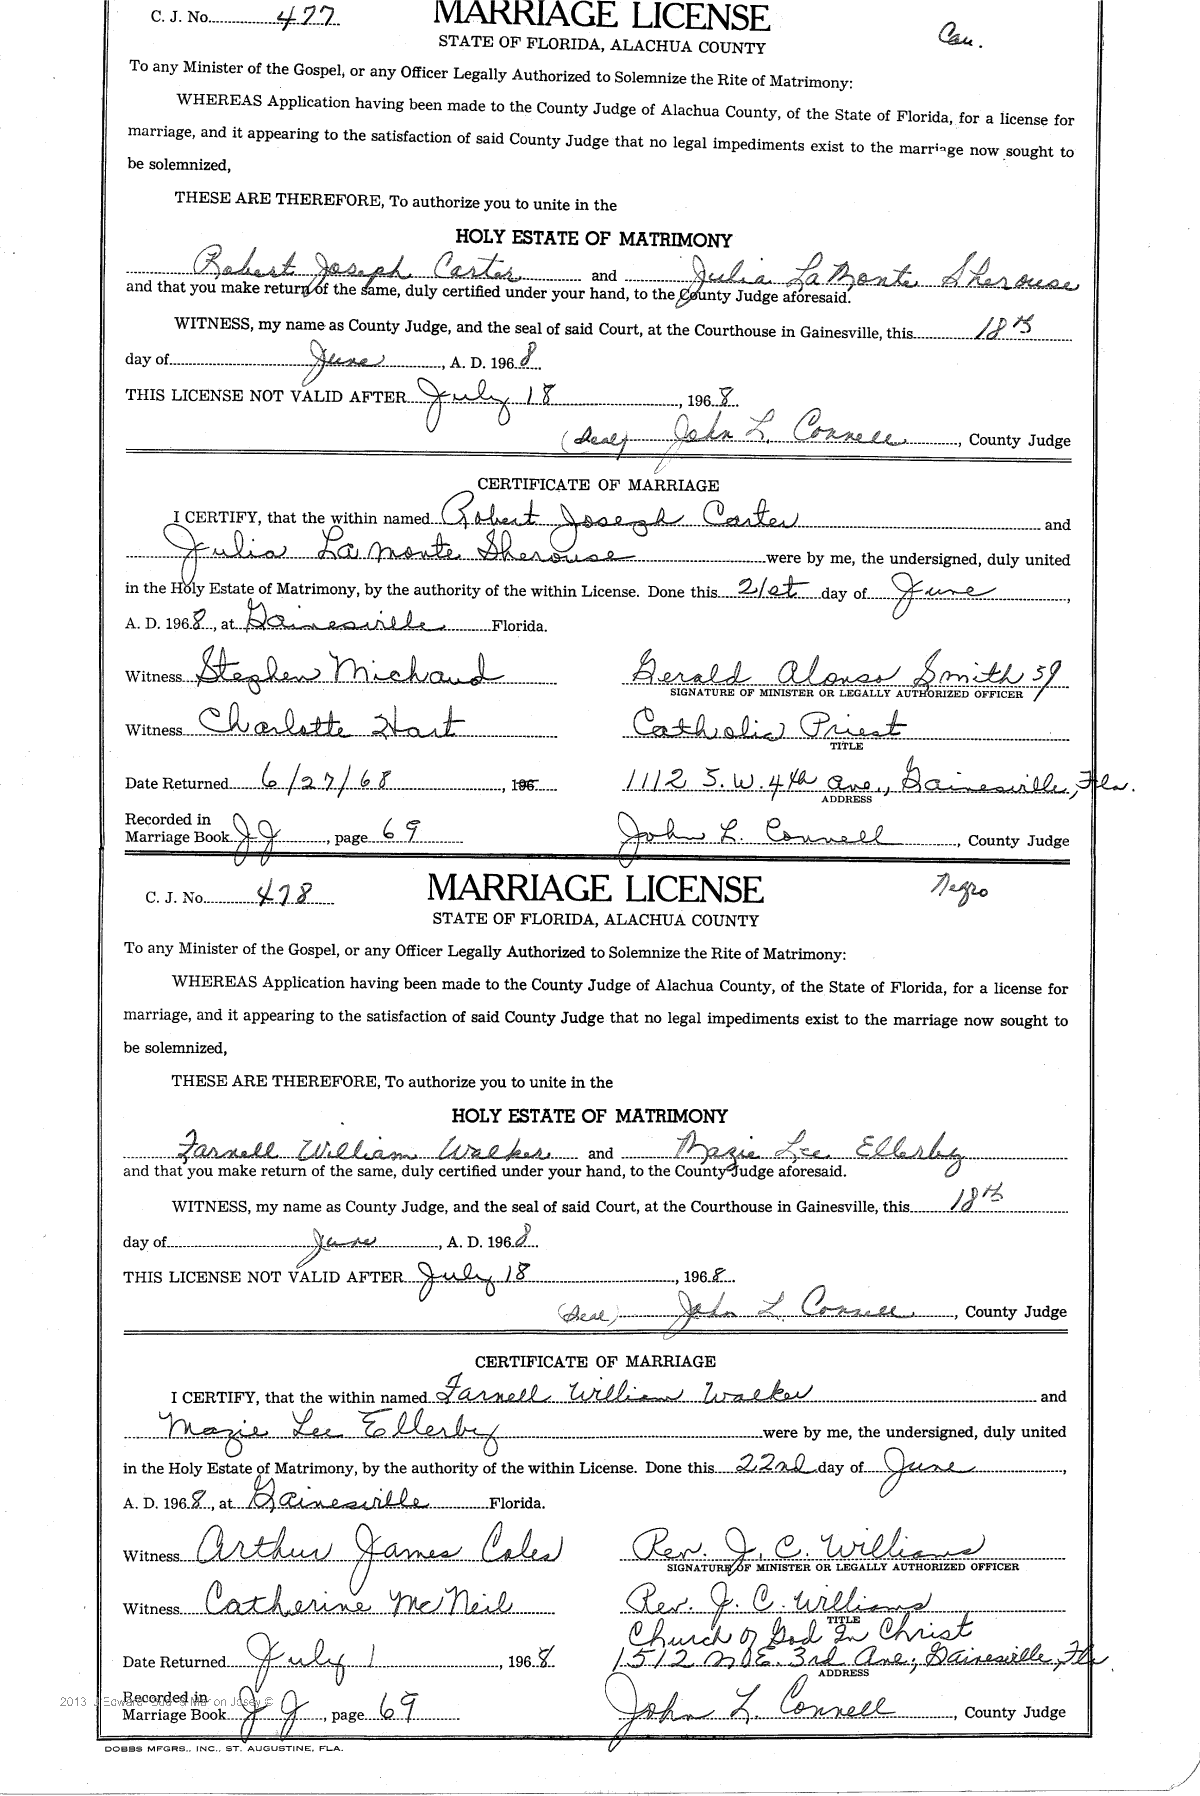 C. J. No. 477 MARRIAGE LICENSE
STATE OF FLORIDA, ALACHUA COUNTY Cau.
To any Minister of the Gospel, or any Officer Legally Authorized to Solemnize the Rite of Matrimony:
WHEREAS Application having been made to the County Judge of Alachua County, of the State of Florida, for a license for
marriage, and it appearing to the satisfaction of said County Judge that no legal impediments exist to the marriage now sought to
be solemnized,
THESE ARE THEREFORE, To authorize you to unite in the
HOLY ESTATE OF MATRIMONY
Robert Joseph Carter and Julia LaMonte Sherouse
and that you make return of the same, duly certified under your hand, to the County Judge aforesaid.
WITNESS, my name as County Judge, and the seal of said Court, at the Courthouse in Gainesville, this 18th
day of June, A. D. 1968.
THIS LICENSE NOT VALID AFTER July 18, 1968.
(Seal) John L. Connell, County Judge
CERTIFICATE OF MARRIAGE
I CERTIFY, that the within named Robert Joseph Carter and
Julia LaMonte Sherouse were by me, the undersigned, duly united
in the Holy Estate of Matrimony, by the authority of the within License. Done this 21st day of June,
A. D. 1968, at Gainesville Florida.
Witness Stephen Michaud Gerald Alonso Smith
SIGNATURE OF MINISTER OR LEGALLY AUTHORIZED OFFICER
Witness Charlotte Hart Catholic Priest
TITLE
Date Returned 6/27/68, 196 1112 S. W. 4th Ave., Gainesville, Fla.
ADDRESS
Recorded in
Marriage Book JJ, page 69 John L. Connell, County Judge
C. J. No. 478 MARRIAGE LICENSE Negro
STATE OF FLORIDA, ALACHUA COUNTY
To any Minister of the Gospel, or any Officer Legally Authorized to Solemnize the Rite of Matrimony:
WHEREAS Application having been made to the County Judge of Alachua County, of the State of Florida, for a license for
marriage, and it appearing to the satisfaction of said County Judge that no legal impediments exist to the marriage now sought to
be solemnized,
THESE ARE THEREFORE, To authorize you to unite in the
HOLY ESTATE OF MATRIMONY
Farnell William Walker and Mazie Lee Ellerby
and that you make return of the same, duly certified under your hand, to the County Judge aforesaid.
WITNESS, my name as County Judge, and the seal of said Court, at the Courthouse in Gainesville, this 18th
day of June, A. D. 1968.
THIS LICENSE NOT VALID AFTER July 18, 1968.
(Seal) John L. Connell, County Judge
CERTIFICATE OF MARRIAGE
I CERTIFY, that the within named Farnell William Walker and
Mazie Lee Ellerby were by me, the undersigned, duly united
in the Holy Estate of Matrimony, by the authority of the within License. Done this 22nd day of June,
A. D. 1968, at Gainesville Florida.
Witness Arthur James Coles Rev. J. C. Williams
SIGNATURE OF MINISTER OR LEGALLY AUTHORIZED OFFICER
Witness Catherine McNeil Rev. J. C. Williams
TITLE
Church of God In Christ
Date Returned July 1, 1968 1512 N.E. 3rd Ave., Gainesville, Fla.
ADDRESS
Recorded in
Marriage Book JJ, page 69 John L. Connell, County Judge
DOBBS MFGRS., INC., ST. AUGUSTINE, FLA.